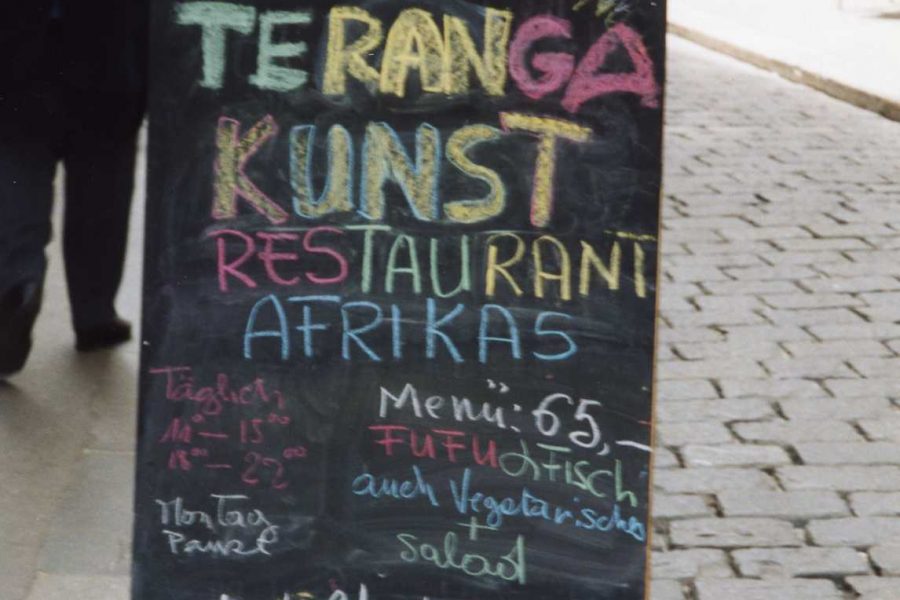 TERANGA
KUNST
RESTAURANT
AFRIKAS
Täglich
11⁰⁰ - 15⁰⁰
18⁰⁰ - 22⁰⁰
Montag
Pause
Menü: 65,-
FUFU & Fisch
auch Vegetarisches
+
Salad